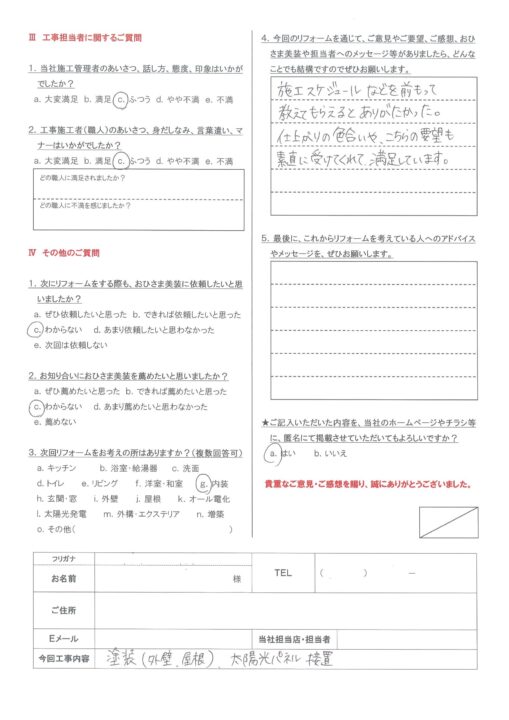 Ⅲ 工事担当者に関するご質問
1. 当社施工管理者のあいさつ、話し方、態度、印象はいかが
でしたか?
a. 大変満足 b. 満足 c. ふつう d. やや不満 e. 不満
2. 工事施工者(職人)のあいさつ、身だしなみ、言葉遣い、マ
ナーはいかがでしたか?
a. 大変満足 b. 満足 c. ふつう d. やや不満 e. 不満
どの職人に満足されましたか?
どの職人に不満を感じましたか?
Ⅳ その他のご質問
1. 次にリフォームをする際も、おひさま美装に依頼したいと思
いましたか?
a. ぜひ依頼したいと思った b. できれば依頼したいと思った
c. わからない d. あまり依頼したいと思わなかった
e. 次回は依頼しない
2. お知り合いにおひさま美装を薦めたいと思いましたか?
a. ぜひ薦めたいと思った b. できれば薦めたいと思った
c. わからない d. あまり薦めたいと思わなかった
e. 薦めない
3. 次回リフォームをお考えの所はありますか?(複数回答可)
a. キッチン b. 浴室・給湯器 c. 洗面
d. トイレ e. リビング f. 洋室・和室 g. 内装
h. 玄関・窓 i. 外壁 j. 屋根 k. オール電化
l. 太陽光発電 m. 外構・エクステリア n. 増築
o. その他( )
4. 今回のリフォームを通じて、ご意見やご要望、ご感想、おひ
さま美装や担当者へのメッセージ等がありましたら、どんな
ことでも結構ですのでぜひお願いします。
施工スケジュールなどを前もって
教えてもらえるとありがたかった。
仕上がりの色合いや、こちらの要望も
素直に受けてくれて、満足しています。
5. 最後に、これからリフォームを考えている人へのアドバイス
やメッセージを、ぜひお願いします。
★ご記入いただいた内容を、当社のホームページやチラシ等
に、匿名にて掲載させていただいてもよろしいですか?
a. はい b. いいえ
貴重なご意見・ご感想を賜り、誠にありがとうございました。
フリガナ
お名前 様 TEL ( ) −
ご住所
Eメール 当社担当店・担当者
今回工事内容 塗装(外壁、屋根)、太陽光パネル設置